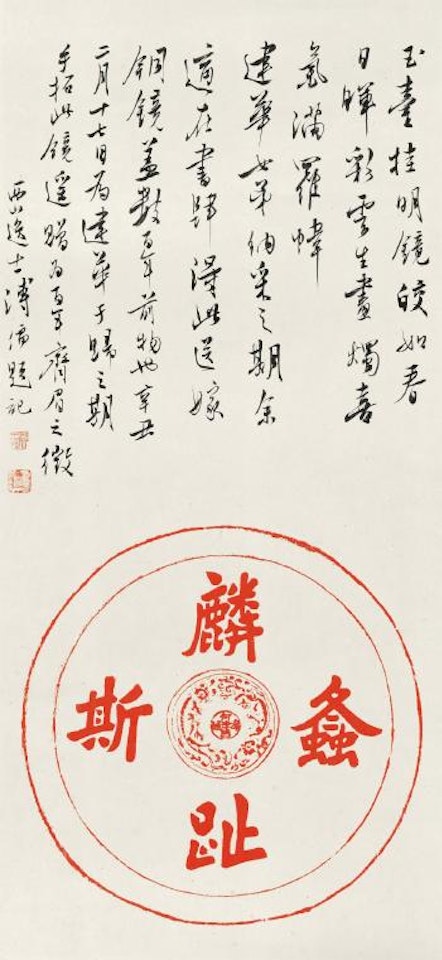 玉臺挂明鏡皎如春
日暉彩雲生畫燭喜
氣滿羅幃
建華女弟納采之期余
適在書肆得此送嫁
銅鏡蓋數百年前物也辛丑
二月十七日為建華于歸之期
手拓此鏡遥贈為百年齊眉之徵
西山逸士溥儒題記
麟趾
螽斯